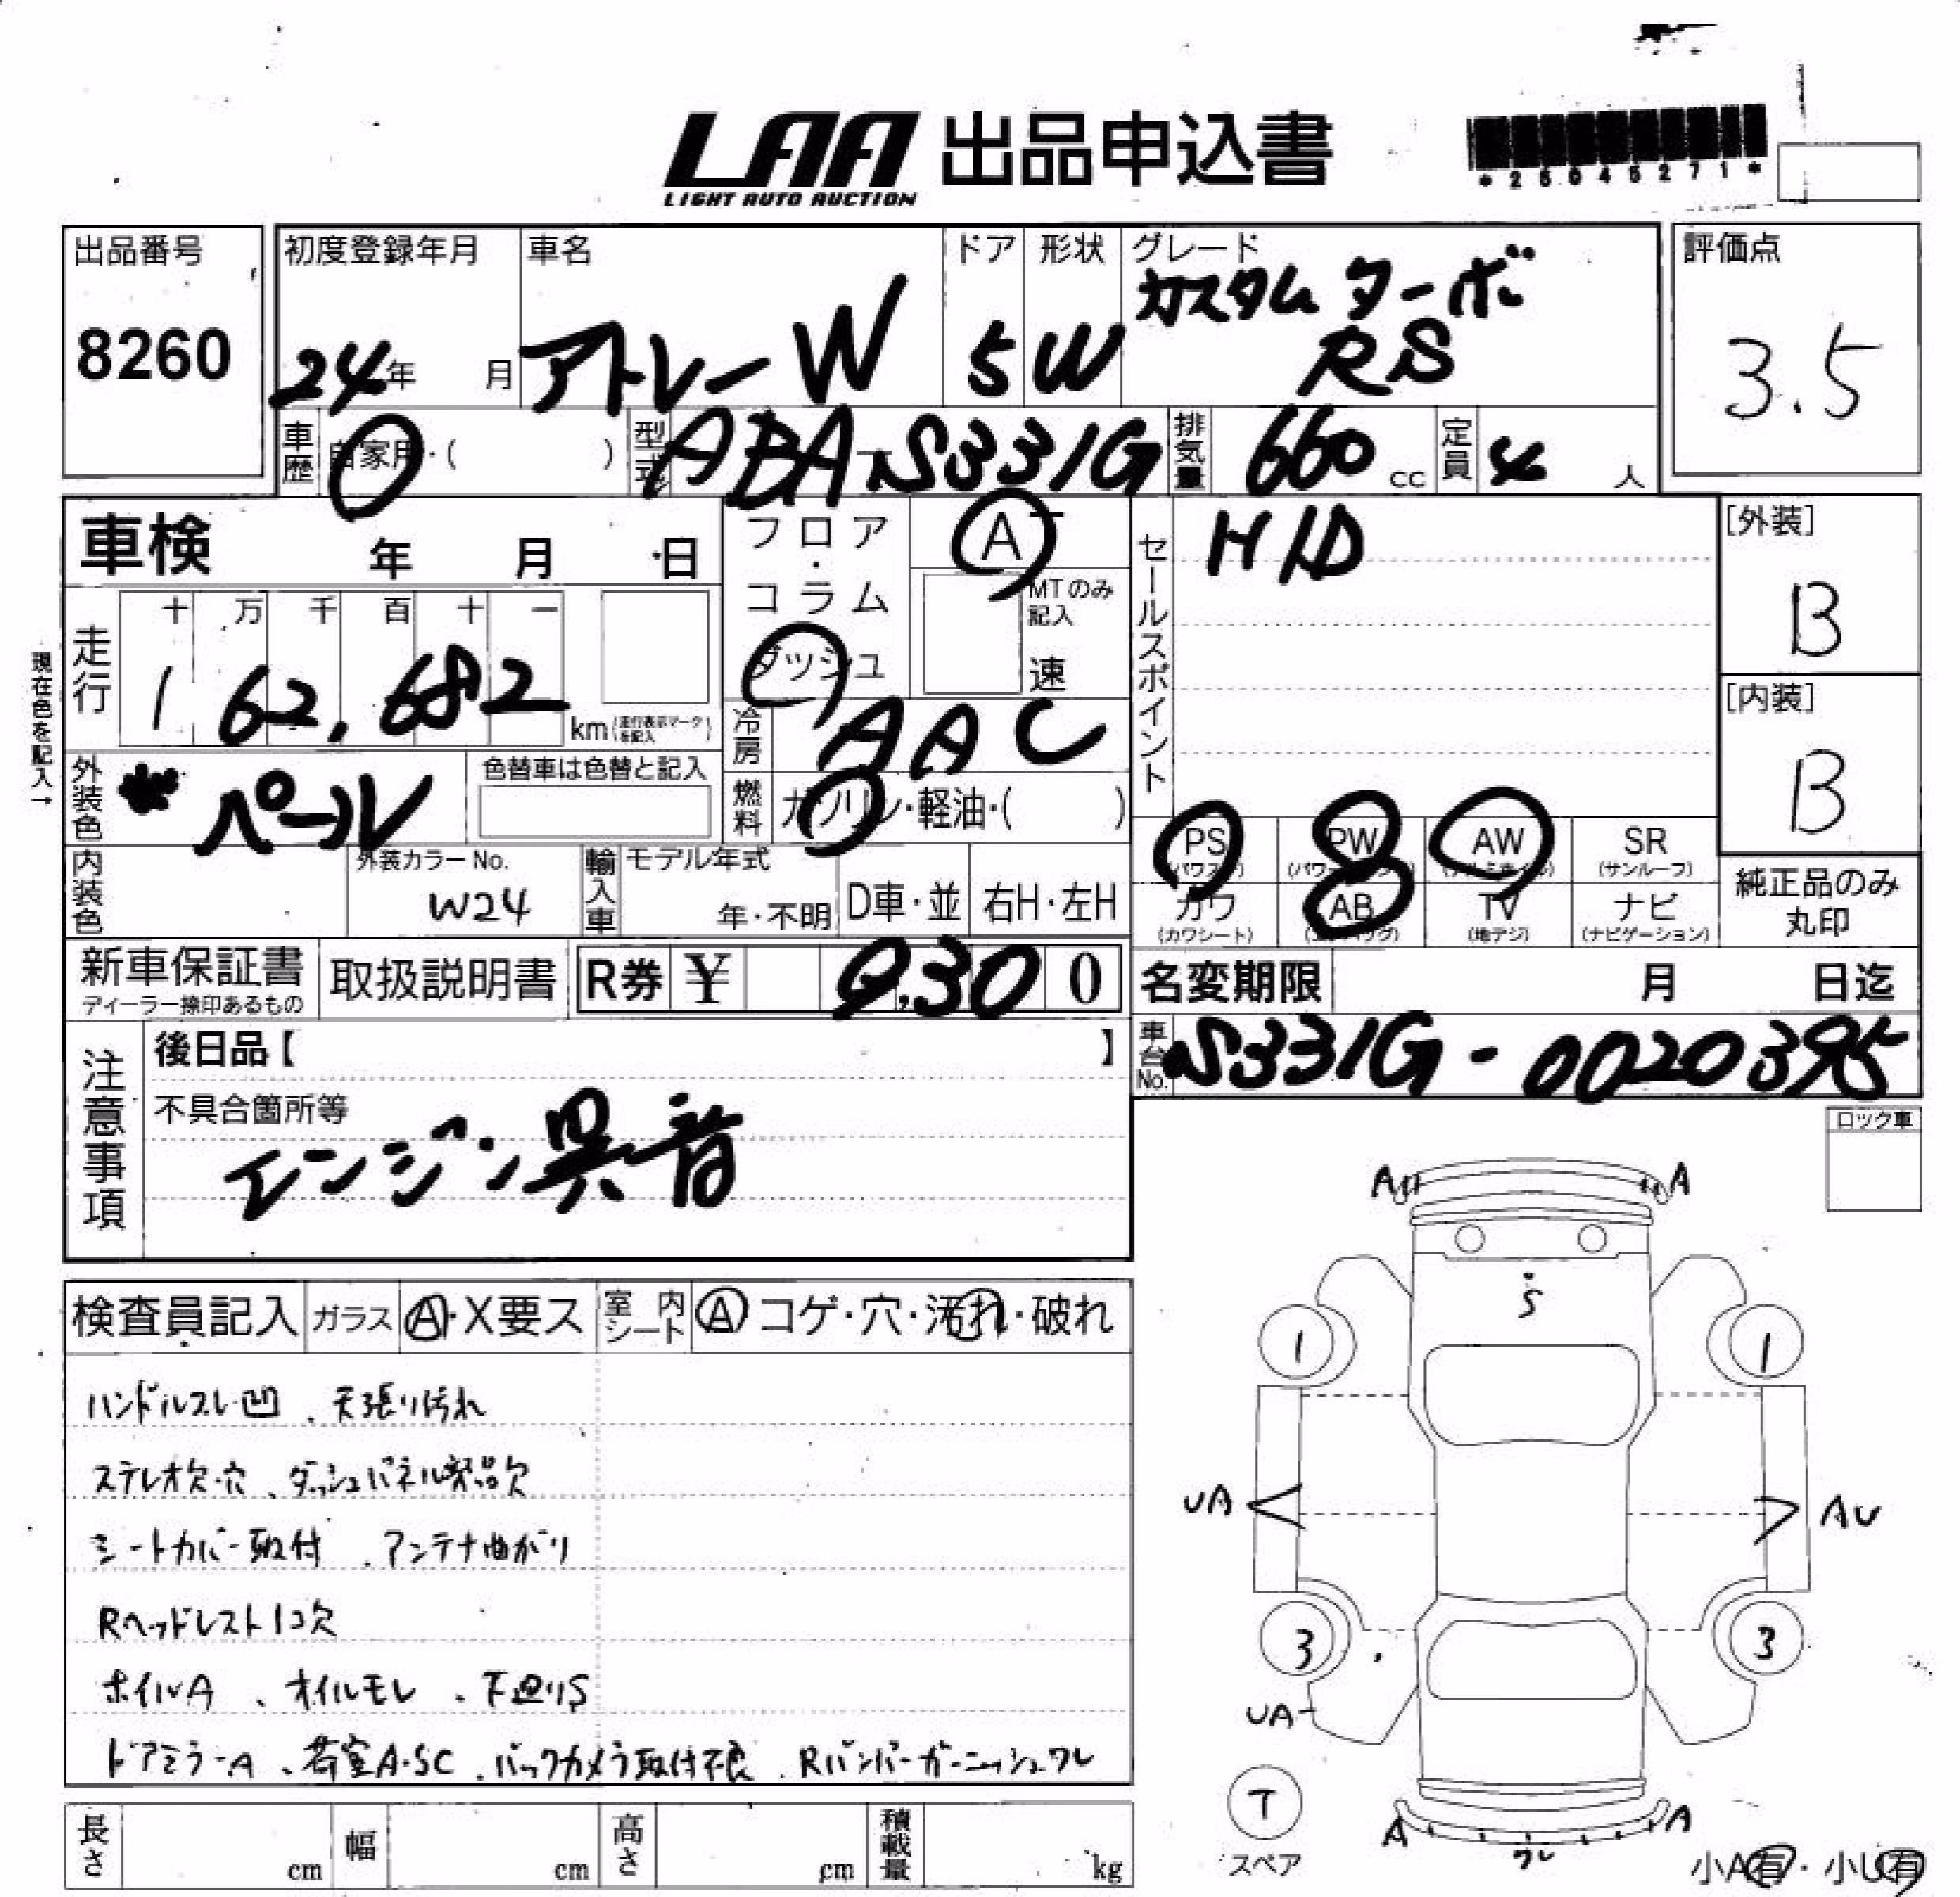 LAA 出品申込書
LIGHT AUTO AUCTION
*25045271*
出品番号
8260
初度登録年月
24年 月
車名
アトレーW
ドア
5
形状
W
グレード
カスタムターボ
RS
評価点
3.5
車歴
自家用・( )
型式
ABA-S331G
排気量
660 cc
定員
4 人
車検 年 月 日
フロア・コラム
ダッシュ
A
MTのみ記入
速
セールスポイント
HID
[外装]
B
[内装]
B
現在色を記入→
走行
十 万 千 百 十 一
162,682
km(走行表示マークを記入)
冷房
AAC
外装色
パール
色替車は色替と記入
燃料
ガソリン・軽油・( )
PS (パワステ)
PW
AW
SR (サンルーフ)
カワ (カワシート)
AB
TV (地デジ)
ナビ (ナビゲーション)
純正品のみ丸印
内装色
外装カラーNo.
W24
輸入車
モデル年式
年・不明
D車・並
右H・左H
新車保証書
ディーラー捺印あるもの
取扱説明書
R券 ¥ 9,30 0
名変期限 月 日迄
車台No.
S331G-0020395
注意事項
後日品【 】
不具合箇所等
エンジン異音
ロック車
検査員記入
ガラス A・X要ス
室内シート A コゲ・穴・汚れ・破れ
ハンドルスレ凹、天張り汚れ
ステレオ欠・穴、ダッシュパネル部品欠
シートカバー取付、アンテナ曲がり
Rヘッドレスト1コ欠
ホイルA、オイルモレ、下廻りS
ドアミラーA、荷室A・SC、バックカメラ取付不良、Rバンパーガーニッシュワレ
A A
S
1 1
UA AU
3 3
UA
T
スペア
A A
ワレ
小A有・小U有
長さ cm
幅 cm
高さ cm
積載量 kg